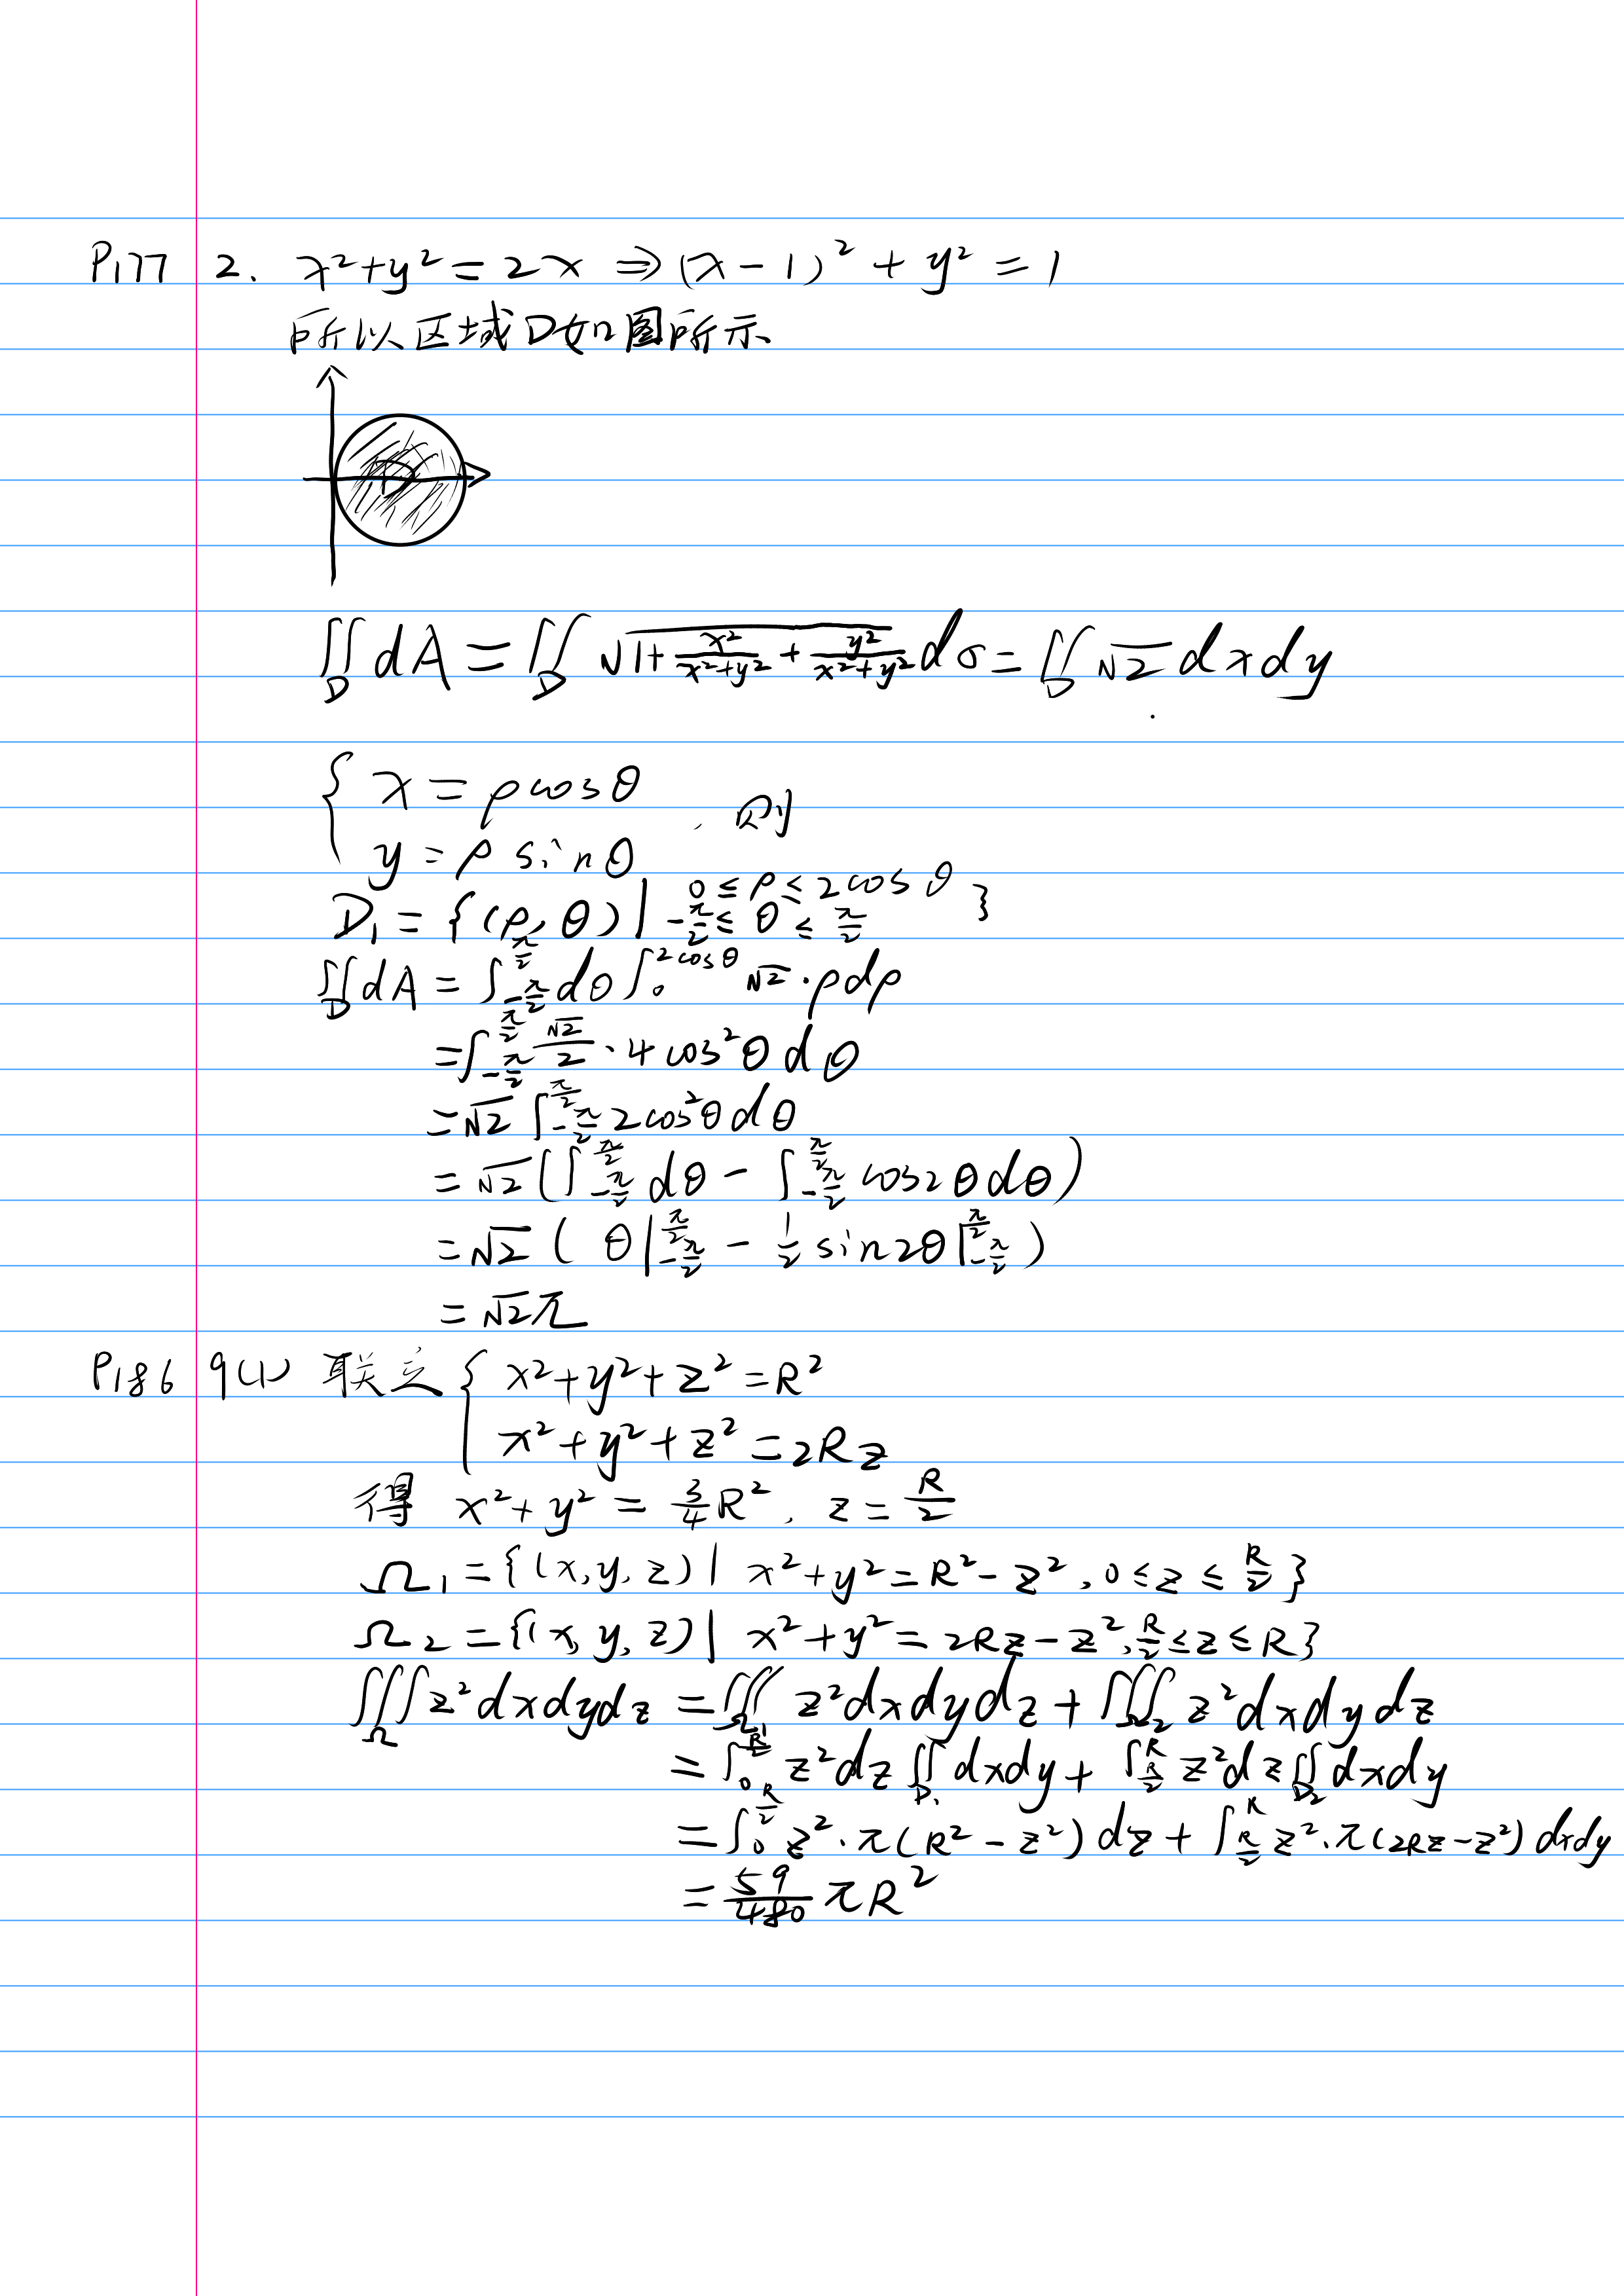 P177 2. x²+y²=2x ⇒ (x-1)²+y²=1
所以区域D如图所示
D
∬_D dA = ∬_D √(1+x²/(x²+y²)+y²/(x²+y²)) dσ = ∬_D √2 dxdy
{ x=ρcosθ
y=ρsinθ , 则
D₁={(ρ,θ)| 0≤ρ≤2cosθ
-π/2≤θ≤π/2 }
∬_D dA = ∫_{-π/2}^{π/2} dθ ∫_0^{2cosθ} √2·ρdρ
=∫_{-π/2}^{π/2} √2/2·4cos²θdθ
=√2 ∫_{-π/2}^{π/2} 2cos²θdθ
=√2(∫_{-π/2}^{π/2} dθ - ∫_{-π/2}^{π/2} cos2θdθ)
=√2(θ|_{-π/2}^{π/2} - 1/2 sin2θ|_{-π/2}^{π/2})
=√2π
P186 9(1) 联立{ x²+y²+z²=R²
x²+y²+z²=2Rz
得 x²+y²=3/4R², z=R/2
Ω₁={(x,y,z)| x²+y²=R²-z²,0≤z≤R/2}
Ω₂={(x,y,z)| x²+y²=2Rz-z²,R/2≤z≤R}
∭_Ω z²dxdydz =∭_{Ω₁} z²dxdydz+∭_{Ω₂} z²dxdydz
=∫_0^{R/2} z²dz∬_{D₁} dxdy+∫_{R/2}^R z²dz∬_{D₂} dxdy
=∫_0^{R/2} z²·π(R²-z²)dz+∫_{R/2}^R z²·π(2Rz-z²)dxdy
=59/480 πR²